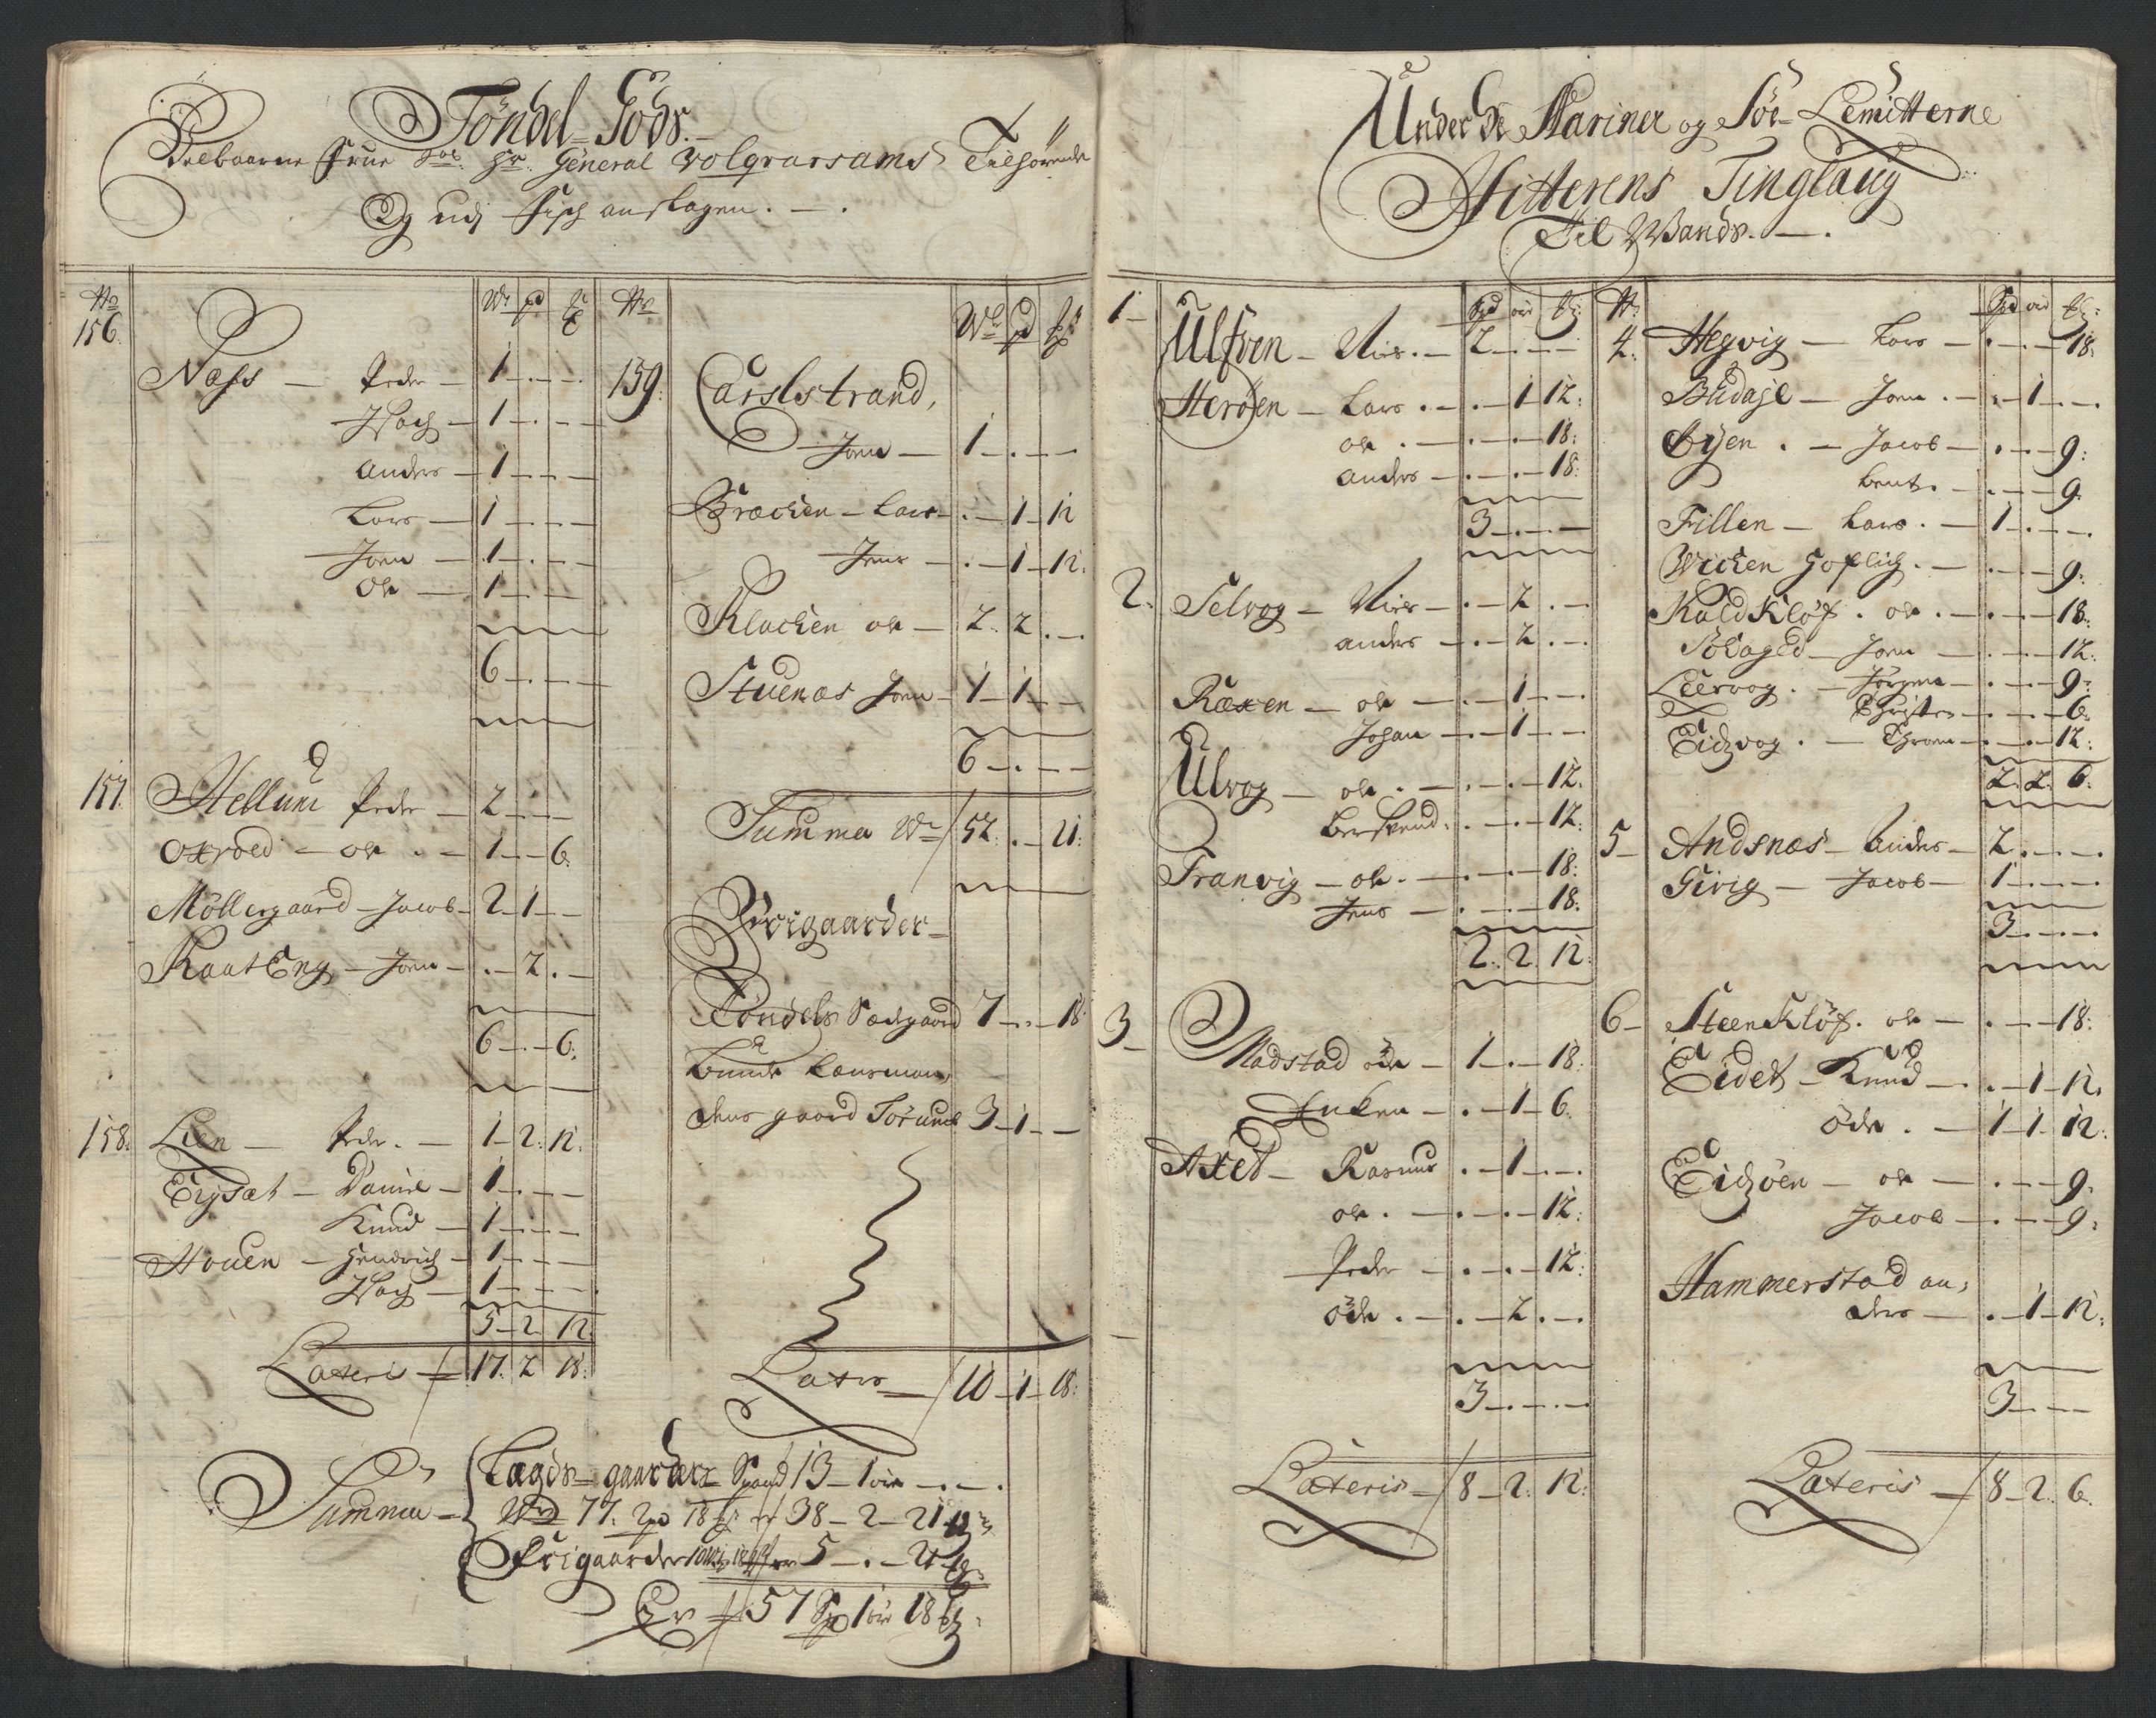 Töndel Gods.
Velbaarne Frue Sal. Hr. General Volqvarsams Tilhörende
Og udj Fisch anslagen.
No Wr pd
156.
Næss - Peder - 1 - . - .
Isach - 1 - . - -
Anders - 1 - . - -
Lars - 1 - . - -
Joen - 1 - . - -
Ole - 1 - . - -
6 - . - -
157. Hellum Peder - 2 - . - -
Oxröed - ole - 1 - - 6.
Möllergaard - Jacob - 2 - 1 - -
RaatEng - Joen - . - 2 . -
6 - . - 6.
158. Lien - Peder - 1 - 2. 12.
Eysæt - Daniel - 1 - . - -
Knud - 1 - . - -
Houen - Hendrich - 1 - . - -
Isach - 1 - . - -
5 - 2 12.
Lateris 17. 2 18.
No Wr pd
159. Carslstrand,
Joen - 1 - . - -
Bræchen - Lars - . - 1 - 12
Jens - . - 1 - 12.
Klachen ole - 2. 2 . -
Stuenæs Joen - 1 - 1 - -
6 - . - -
Summa Wr 52. . - 21.
Frigaarder -
Töndels Sædegaard 7 - . - 18
Bunde Lænsmand
dens gaard Sörund 3 - 1 - -
Laters 10 - 1 - 18.
Summa - Lægds gaarder Spand 13 - 1 ör - . -
Wr 77. 2 pd 18 er 38 - 2 - 21
Frigaarder 5 - . - 21
Er 57 Sp 1 ör 18
Under de Mariner og Söe Lemitterne
Hitterens Tinglaug
Til Wands.
Spd ör
1 - Ulföen - Niels - 2 - . - -
Heröen - Lars - . - 1 12.
ole . - . - . - 18.
anders - . - . - 18.
3 - . - -
2. Selvog - Niels - . - 2 . -
anders - . - 2 . -
Ræxen - ole - . - 1 - .
Johan - . - 1 - -
Ulvog - ole . - . - . - 12.
Berskend. . - . - 12.
Tranvig - ole - . - . - 18.
Jens - . - . - 18.
2. 2. 12.
3 - Madstad öde - 1 - . - 18.
Enken - . - 1 - 6.
Axed - Rasmus . - 1 - - .
ole . - . - . - 12.
Peder - . - . - 12.
öde . - . - 2 . -
3 - . - . -
Lateris 8 - 2. 12.
No Spd ör
4. Hegvig - Lars - . - . - 18.
Budage - Joen . - . - 1 - .
Öyen . - Jacob - . - . - 9.
Bent. - . - . - 9.
Fillen - Lars . - 1 - . - .
Wichen - . - . - 9.
KaldKlöf . ole . - . - . - 18.
Joen - . - . - 12.
Leervog . - Jörgen - . - . - 9.
Christen - . - . - 6.
Eidzvog . - Thron - . - . - 12.
2. 2. 6.
5 - Andsnæs - Anders - 2 . - . - .
Girig - Jacob - 1 - . - .
3 - . - .
6 - SteenKlöf . ole - . - . - 18.
Eidet - Knud - . - 1 - 12.
Öde . - 1 - 1. 12.
Eidzöen - ole - . - . - 9.
Jacob - . - . - 9.
Hammerstad an-
ders - . - 1 - 12.
3 - . - -
Lateris - 8 - 2. 6.